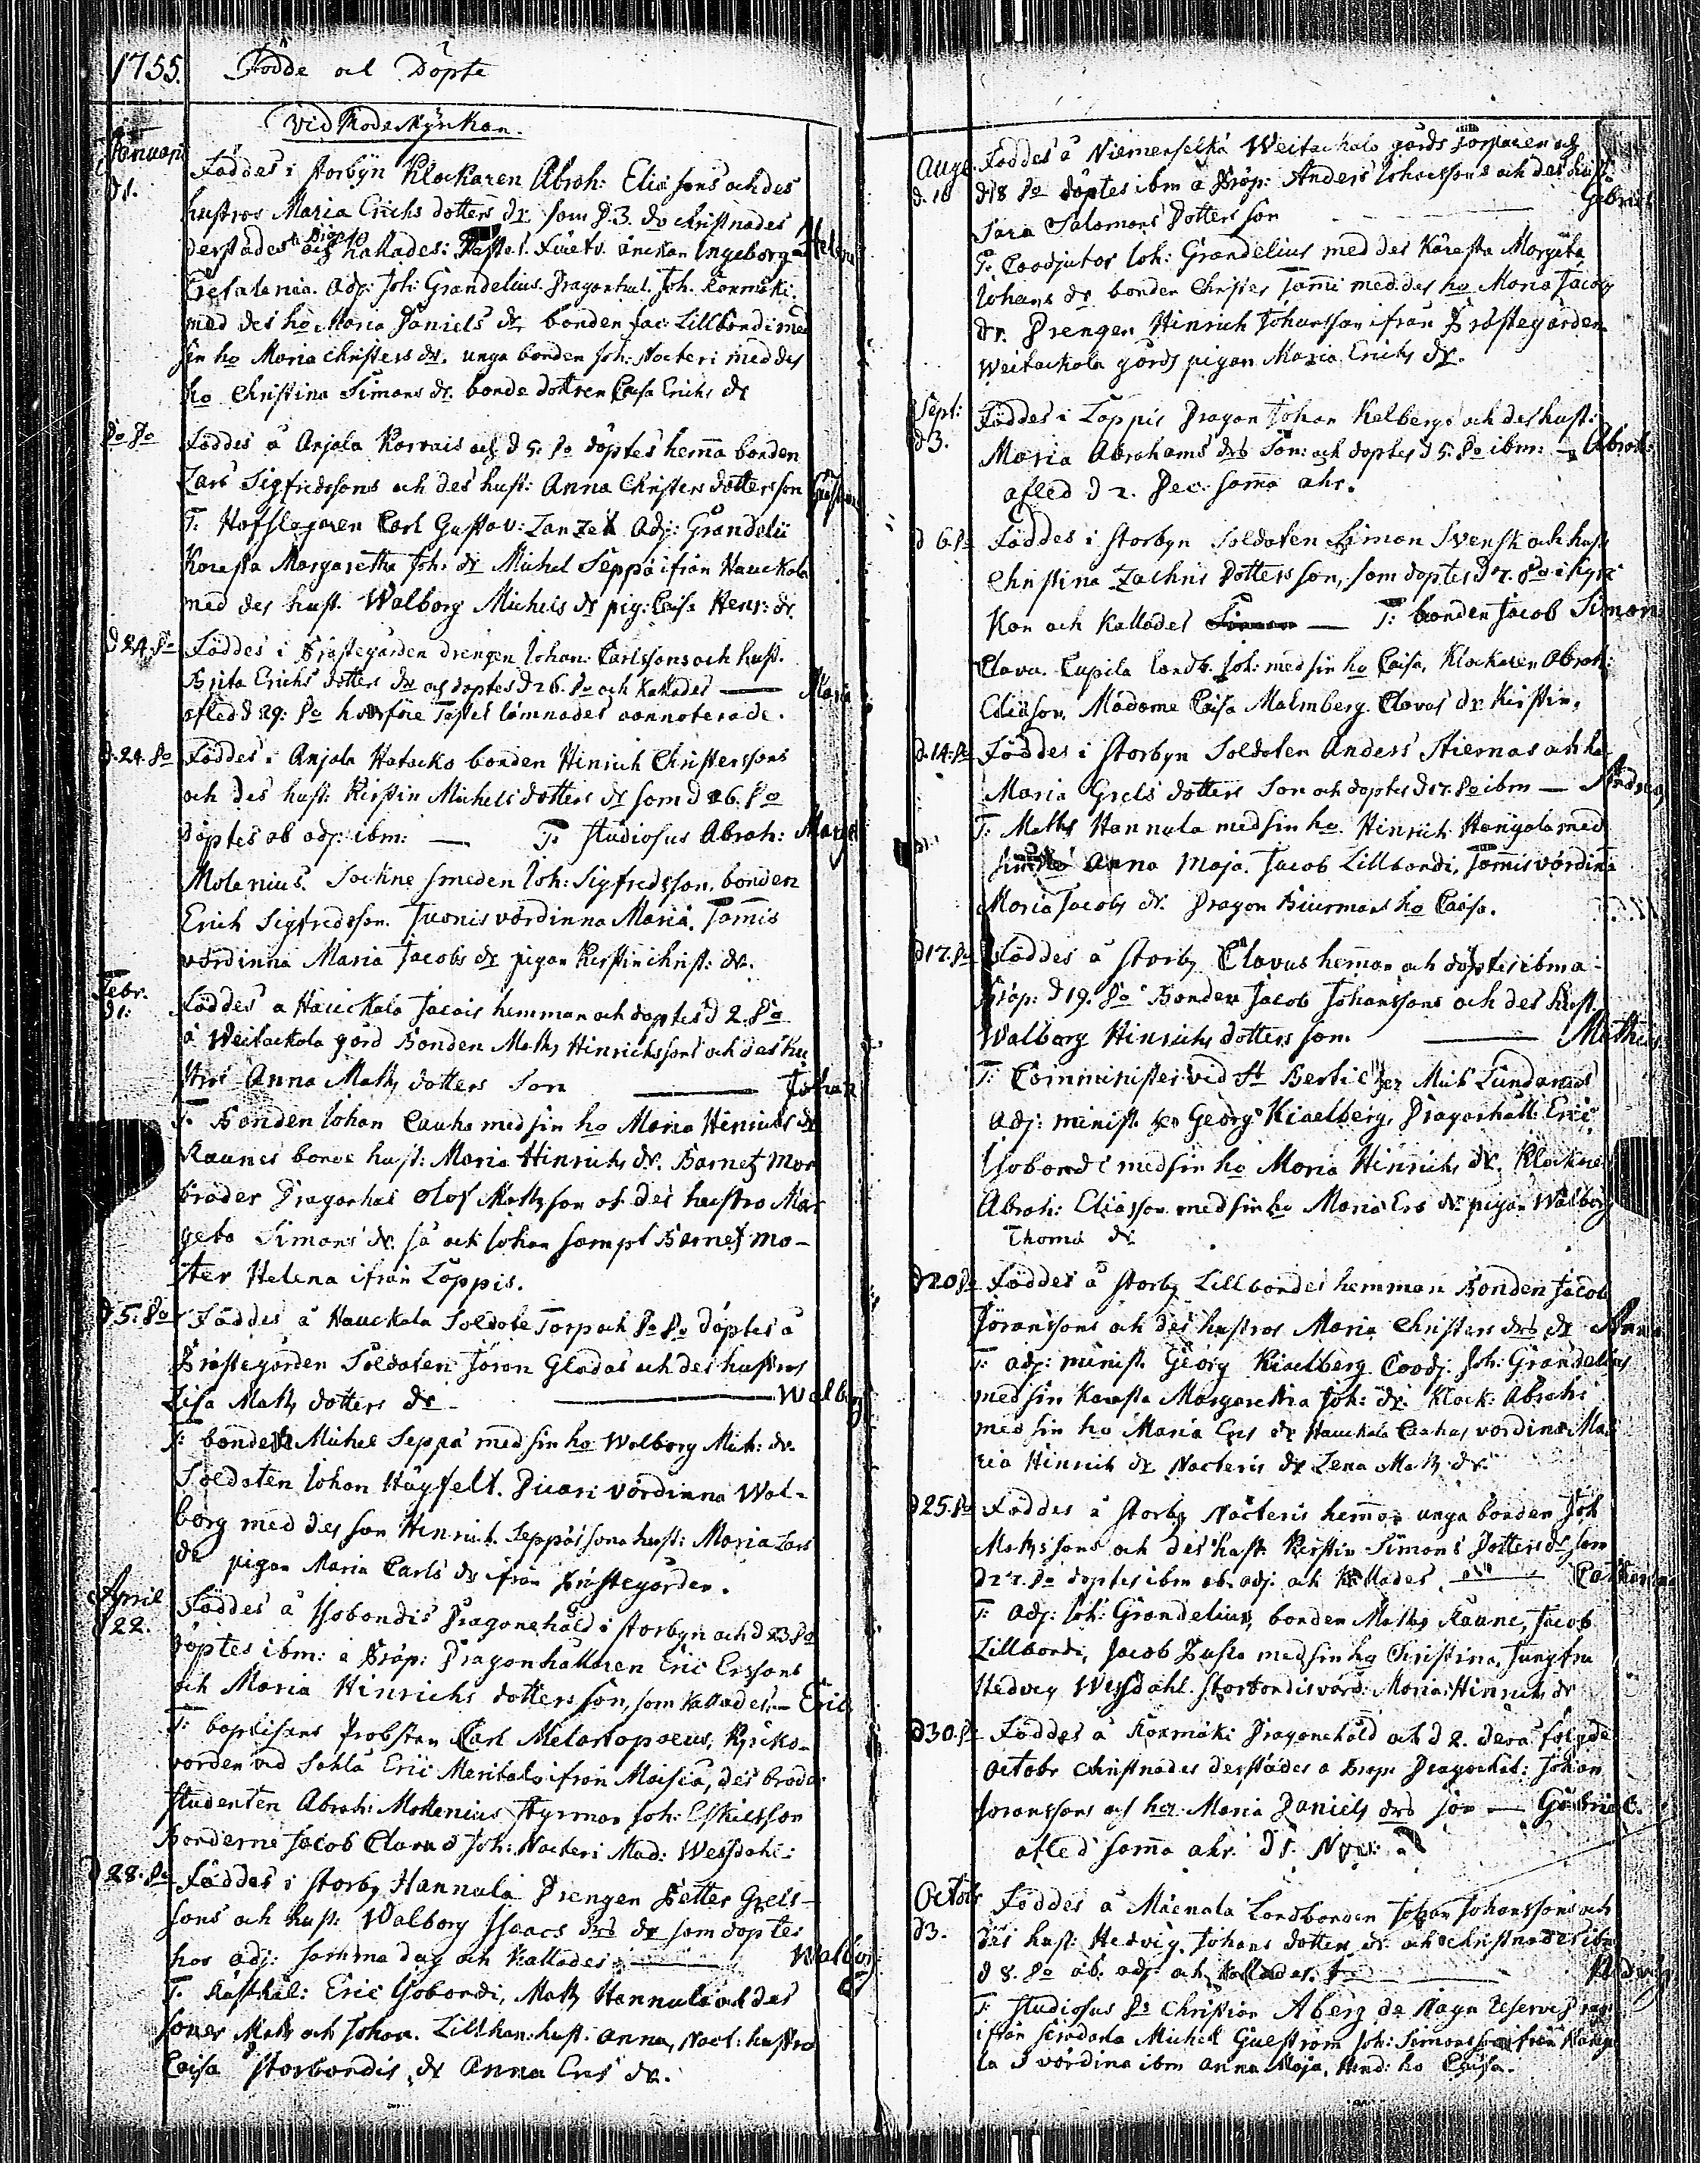 1755. Födde och Döpte
Vid Moderkyrkan.
Januari
d 1. Föddes i storbyn Klockaren Abrah: Eliæ sons och des
hustros Maria Erichs dotters dr som d 3. do christnades
derstädes och kallades: Enckan Ingeborg Helena
Adj: Joh: Grandelius. Dragonhul. Joh. Kormäki
med des ho Maria Daniels dr bonden Jac: Lillbondi med
sin ho Maria Christers dr. unga bonden Joh: Nocteri med des
ho Christina Simons dr. bonde dottren Caisa Erichs dr
do do Föddes å Anjala Korvais och d 5. do döptes hemma bonden
Lars Sigfredssons och des hust: Anna Christers dotters son
T. Hofslagaren Carl Gustav: Adj: Grandelii
Karesta Margaretha Joh: dr Michel Seppä ifrån Hauckala
med des hust. Walborg Michels dr pig: Caisa Henr: dr.
d 24. do Föddes i Prästegården drengen Johan: Carlssons och hust.
Brita Erichs dotters dr och döptes d 26. do och kallades — Maria
afled d 29: do hvarföre lämnades oannoterade.
d. 24. do Föddes i Anjala Hatacko bonden Hinrich Christerssons
och des hust: Kirstin Michels dotters dr som d 26. do
döptes ab adj: ibm: — T. Studiosus Abrah: Marg
Molenius. Sockne smeden Joh: Sigfredsson. bonden
Erich Sigfredsson. Tuonis värdinna Maria. Tomis
värdinna Maria Jacobs dr pigan Kirstin Christ: dr.
Febr.
d 1: Föddes å Hauckala Jacois hemman och döptes d 2. do
å Weitackola gård Bonden Matts Hinrichssons och des hu
stros Anna Matts dotters son — Johan
T. Bonden Johan Cauha med sin ho Maria Hinrichs dr
Raunes bonde hust: Maria Hinrichs dr. Barnets mor
broder Dragonhal Olof Mattsson och des hustro Mar
geta Simons dr. så och Johan sampt Barnets mo-
ster Helena ifrån Loppis.
d 5. do Föddes å Hauckala Soldate Torp och do do döptes å
Prästegården Soldaten Jöran Gladas och des hustros
Lisa Matts dotters dr — Walborg
T: bonden Michel Seppä med sin ho Walborg Mich: dr.
Soldaten Johan Hägfelt. värdinna Wal-
borg med des son Hinrich. Seppäs sons hust: Maria Lars
dr pigan Maria Carls dr ifrån Prästegården.
April
22. Föddes å Isobondis Dragonehåld i storbyn och d 23 do
döptes ibm: a Präp: Dragonhållaren Eric Erssons
och Maria Hinrichs dotters son, som kallades: — Eric
T: baptisans Probsten Carl Melartopoeus, Kyrko-
vorden vid Eric ifrån des broder
studenten Abrah: Molenius Styrman Joh: Eskilsson
Bönderne Jacob Clavus Joh: Nacteri Mad: Wessdahl:
d 28. do Föddes i storby Hannula Drengen Petter Grels-
sons och hust: Walborg Isaacs drs dr som döptes
hos adj: samma dag och kallades — Walborg
T. Rusthål: Eric Isobondi, Matts Hannula och des
soner Matts och Johan. Lillhan: hust: Anna, Nact: hustro
Caisa Storbondis dr Anna Ers dr.
Aug.
d. 16 Föddes å Niemenselkä Weitackala gårds torparen och
d 18 do döptes ibm a Präp: Anders Johanssons och des hust:
Sara Salomons Dotters son — Gabriel
T: Coadjutor Joh: Grandelius med des käresta Margeta
Johans dr bonden Christer Tomi med des ho Maria Jacobs
dr. Drengen Hinrich Johansson ifrån Prästegården
Weitackala gårds pigan Maria Erichs dr.
Sept:
d 3. Föddes i Loppis Dragon Johan Kelbergs och des hust:
Maria Abrahams drs Son: och döptes d 5. do ibm: — Abrah:
afled d 2. Dec: samma ahr.
d 6. do Föddes i storbyn Soldaten Simon Svensk och hust
Christina Zachris dotters son, som döptes d 7. do i kyrc
kan och kallades — T: bonden Jacob Simon
Clavu. Cupila landb. Joh: med sin ho Caisa, Klockaren Abrah:
Eliasson, Madame Caisa Malmberg Clavas dr Kirstin.
d. 14. do Föddes i storbyn Soldaten Anders Stiernas och ho
Maria Grels dotters Son och döptes d 17. do ibm — Andreas
T: Matts Hannula med sin ho. Hinrich Hangola med
sin ho Anna Maja. Jacob Lillbondi, Tomis värdina
Maria Jacobs dr. Dragon Biurmans ho Caisa.
d 17. do Föddes å storby Clavus hemman och döptes ibm a
Präp: d 19. do Bonden Jacob Johanssons och des hust
Walborg Hinrichs dotters son. — Mathias
T: Comminister vid St Bertil her Mich Lundanus
adj: minist. her Georg Kiaelberg, Dragonhåll: Eric
Isobondi med sin ho Maria Hinrichs dr. Klockare
Abrah: Eliasson med sin ho Maria Ers dr pigan Walborg
Thomæ dr
d 20 do Föddes å storby Lillbondes hemman Bonden Jacob
Jöranssons och des hustros Maria Christers drs dr Anna
T: adj: minist. Georg Kiaelberg Coadj. Joh: Grandelius
med sin Karesta Margaretha Joh: dr. Klock: Abrahs
med sin ho Maria Ers dr Hauckala Cauhas värdina Ma
ria Hinrich dr Nacteris dr Lena Matts dr.
d 25. do Föddes å storby Nacteris hemman unga bonden Joh
Mattssons och des hust. Kirstin Simons Dotters dr som
d 27. do döptes ibm ab. adj. och kallades — Catharina
T: Adj: Joh: Grandelius, bonden Matts Raune, Jacob
Lillbondi, Jacob med sin ho Christina, Jungfru
Hedveg Wessdahl. Storbondis värd: Maria Hinrichs dr
d 30. do Föddes å Kormäki Dragonehåld och d 2. derå följde
octobr christnades derstädes a Präp: Dragonhål: Johan
Joranssons och her Maria Daniels drs son — Gabriel.
afled samma ahr. d 1. Nov:
Octobr
d 3. Föddes å Mäenala Landbonden Johan Johanssons och
des hust: Hedvig Johans dotters dr och christnades ibm
d 8. do ab. adj: och kallades — Hedvig
T: Studiosus Christian Aberg de Reserve Drag:
ifrån Michel Joh: Simonsson ifrån
la värdina ibm Anna Maja, ho Caisa.